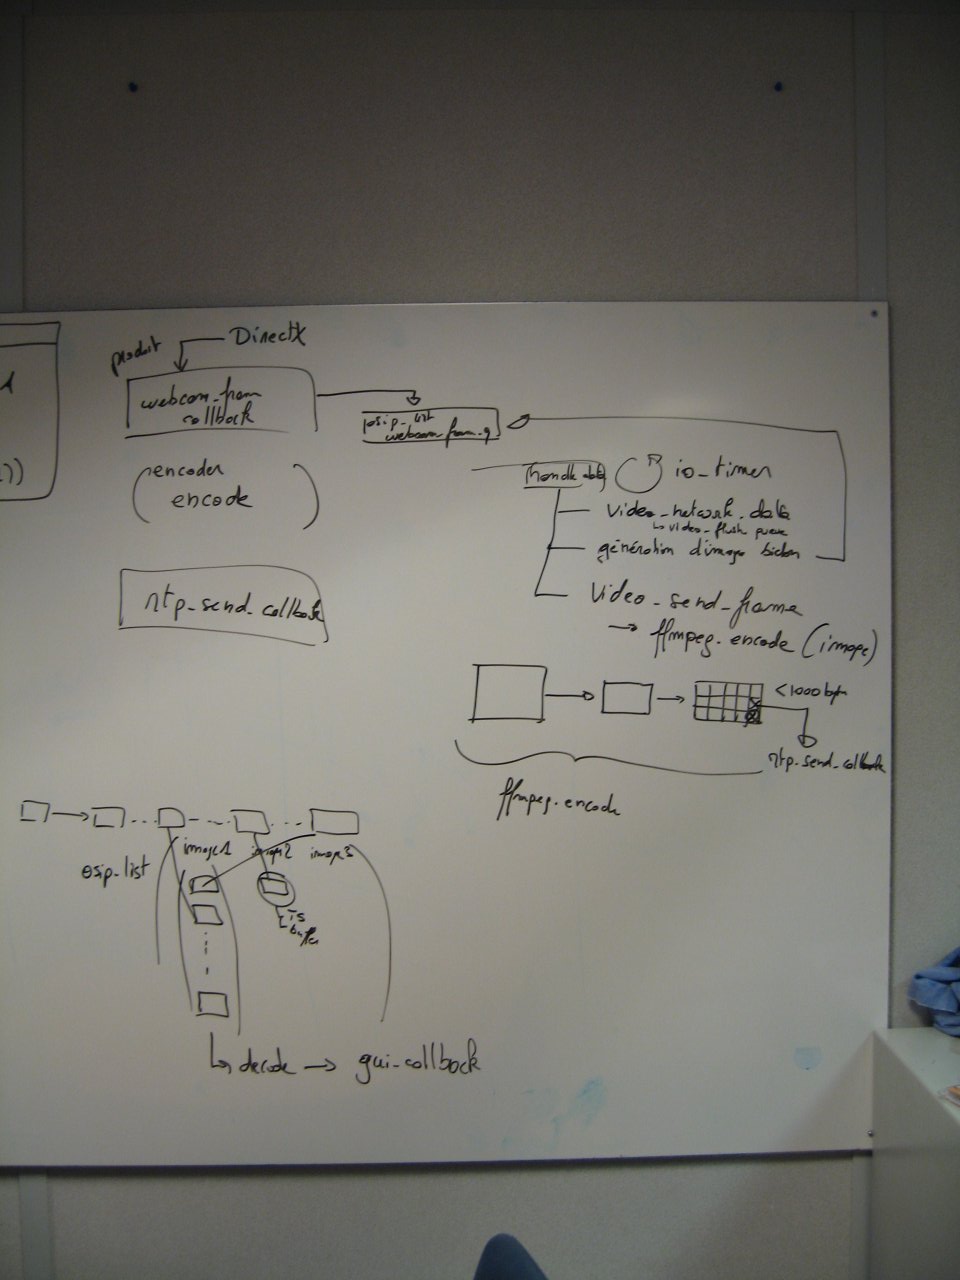 produit
DirectX
webcam_from
callback
osip_list
webcam_from_q
(encoder
encode)
rtp_send_callback
handle data
io_timer
video_network_data
↳ video_flush queue
génération d'image bidon
Video_send_frame
→ ffmpeg_encode (image)
<1000 bytes
rtp_send_callback
ffmpeg_encode
image1
image2
image3
osip_list
TS
buffer
↳ decode → gui_callback